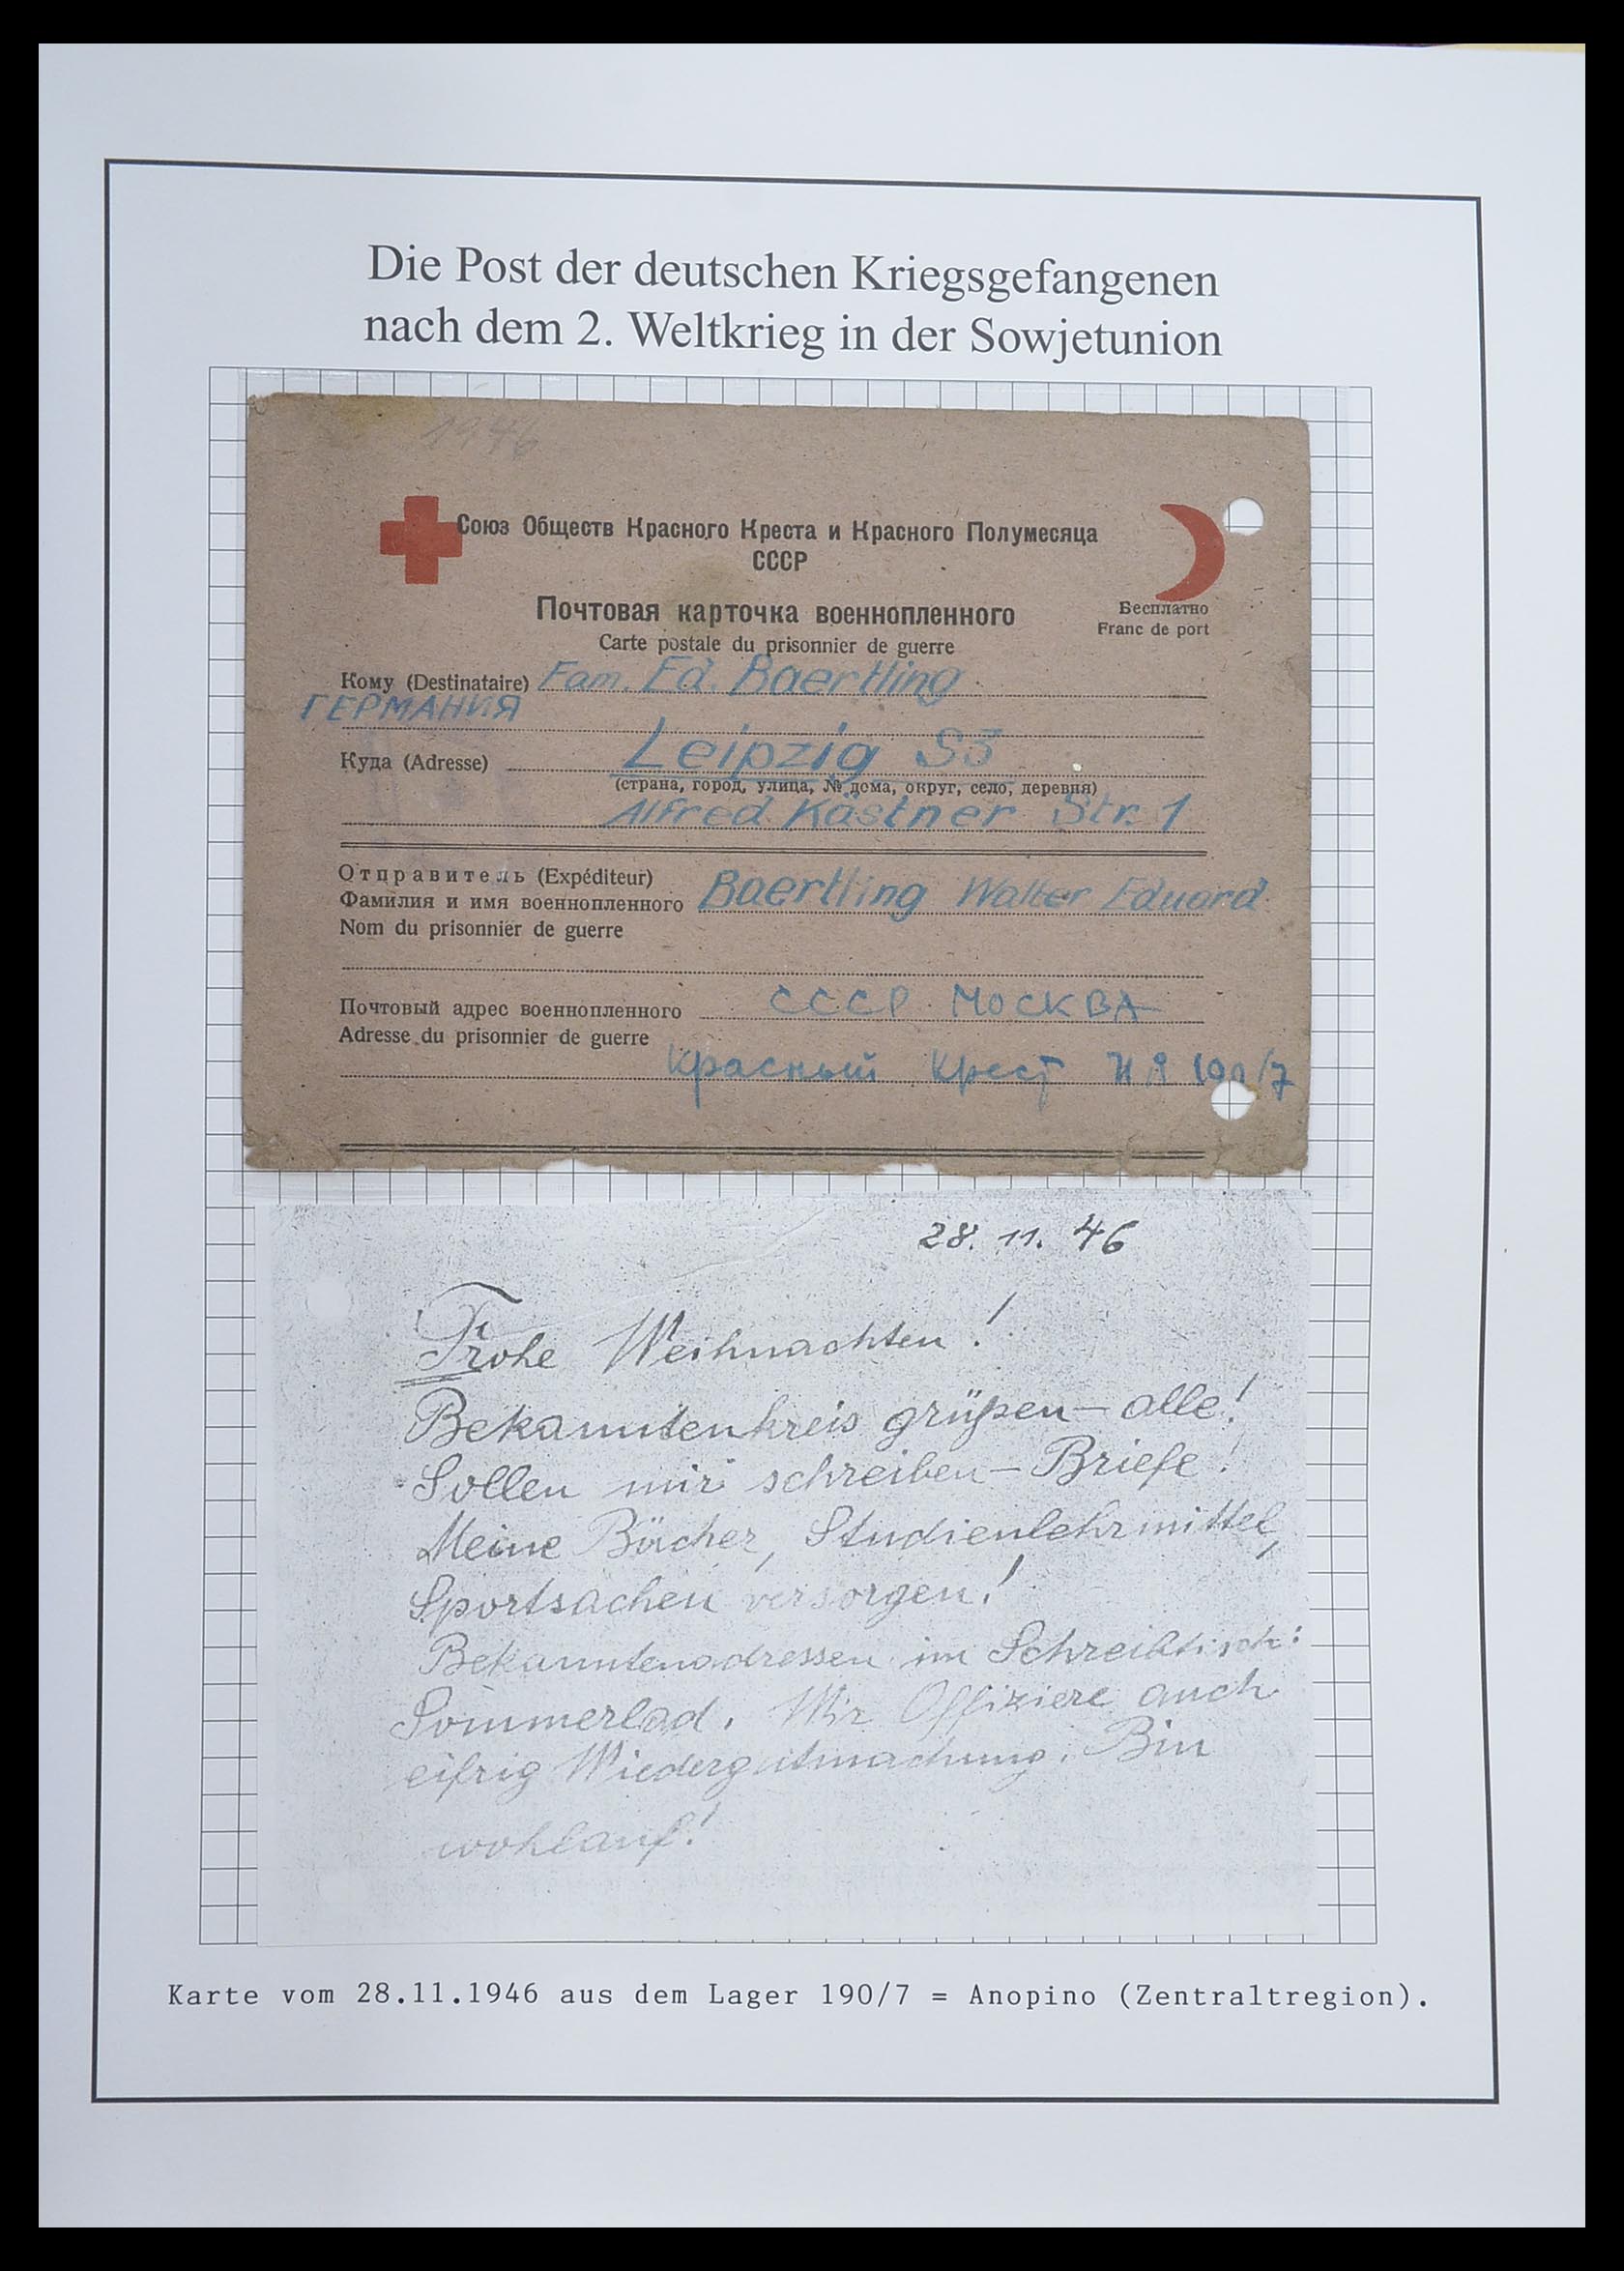 Die Post der deutschen Kriegsgefangenen
nach dem 2. Weltkrieg in der Sowjetunion
1946
Союз Обществ Красного Креста и Красного Полумесяца
СССР
Почтовая карточка военнопленного
Carte postale du prisonnier de guerre
Бесплатно
Franc de port
Кому (Destinataire) Fam. Ed. Baertling
ГЕРМАНИЯ
Куда (Adresse) Leipzig S3
(страна, город, улица, № дома, округ, село, деревня)
Alfred Kästner Str. 1
Отправитель (Expéditeur)
Фамилия и имя военнопленного Baertling Walter Eduard
Nom du prisonnier de guerre
Почтовый адрес военнопленного СССР МОСКВА
Adresse du prisonnier de guerre
Красный Крест 190/7
28. 11. 46
Frohe Weihnachten!
Bekanntenkreis grüßen – alle!
Sollen mir schreiben – Briefe!
Meine Bücher, Studienlehrmittel,
Sportsachen versorgen!
Bekanntenadressen im Schreibtisch:
Sommerlad. Wir Offiziere auch
eifrig Wiedergutmachung. Bin
wohlauf!
Karte vom 28.11.1946 aus dem Lager 190/7 = Anopino (Zentraltregion).